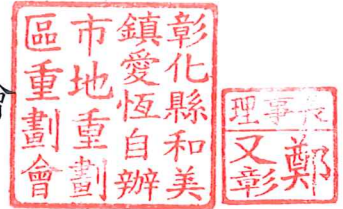 彰化縣和美
鎮愛恆自辦
市地重劃
區重劃會
理事長
鄭
又彰